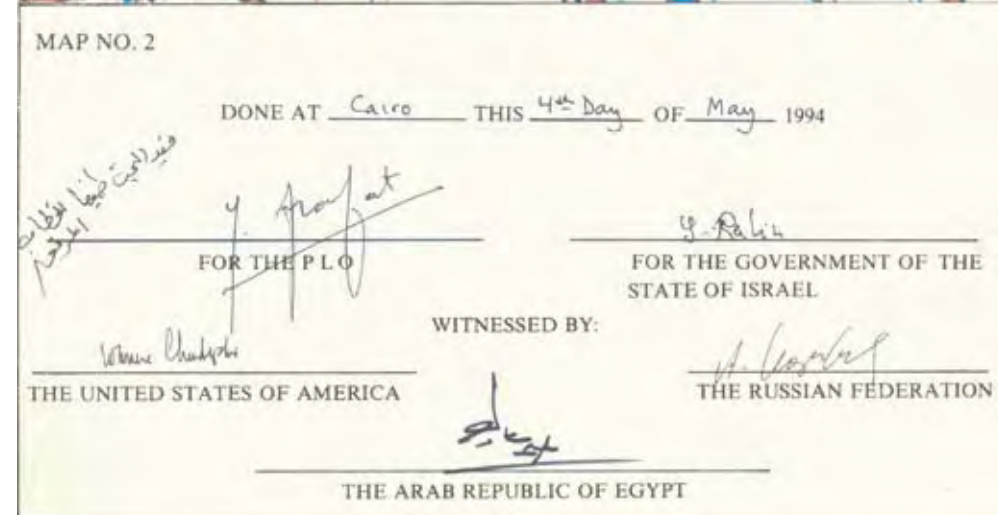 MAP NO. 2
DONE AT Cairo THIS 4th Day OF May 1994
Y. Arafat
Y. Rabin
FOR THE P L O
FOR THE GOVERNMENT OF THE
STATE OF ISRAEL
WITNESSED BY:
THE UNITED STATES OF AMERICA
THE RUSSIAN FEDERATION
THE ARAB REPUBLIC OF EGYPT